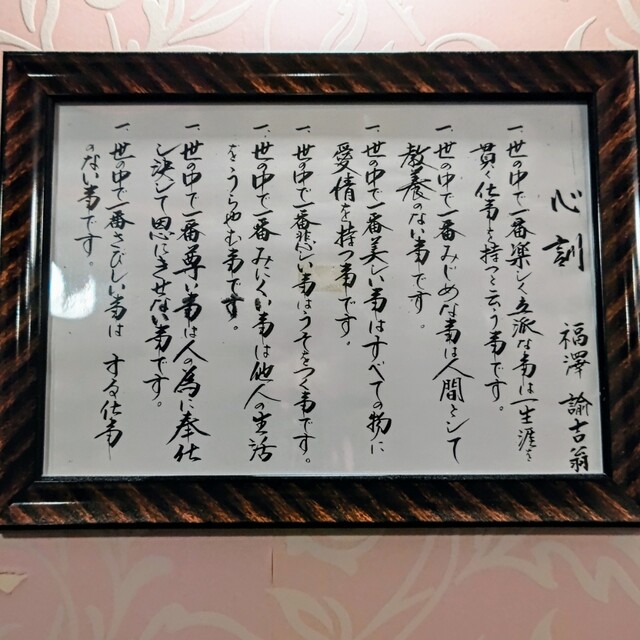 心訓 福澤諭吉翁
一、世の中で一番楽しく立派な事は一生涯を
貫く仕事を持つと云う事です。
一、世の中で一番みじめな事は人間として
教養のない事です。
一、世の中で一番美しい事はすべての物に
愛情を持つ事です。
一、世の中で一番悲しい事はうそをつく事です。
一、世の中で一番みにくい事は他人の生活
をうらやむ事です。
一、世の中で一番尊い事は人の為に奉仕
し決して恩にきせない事です。
一、世の中で一番さびしい事は する仕事
のない事です。